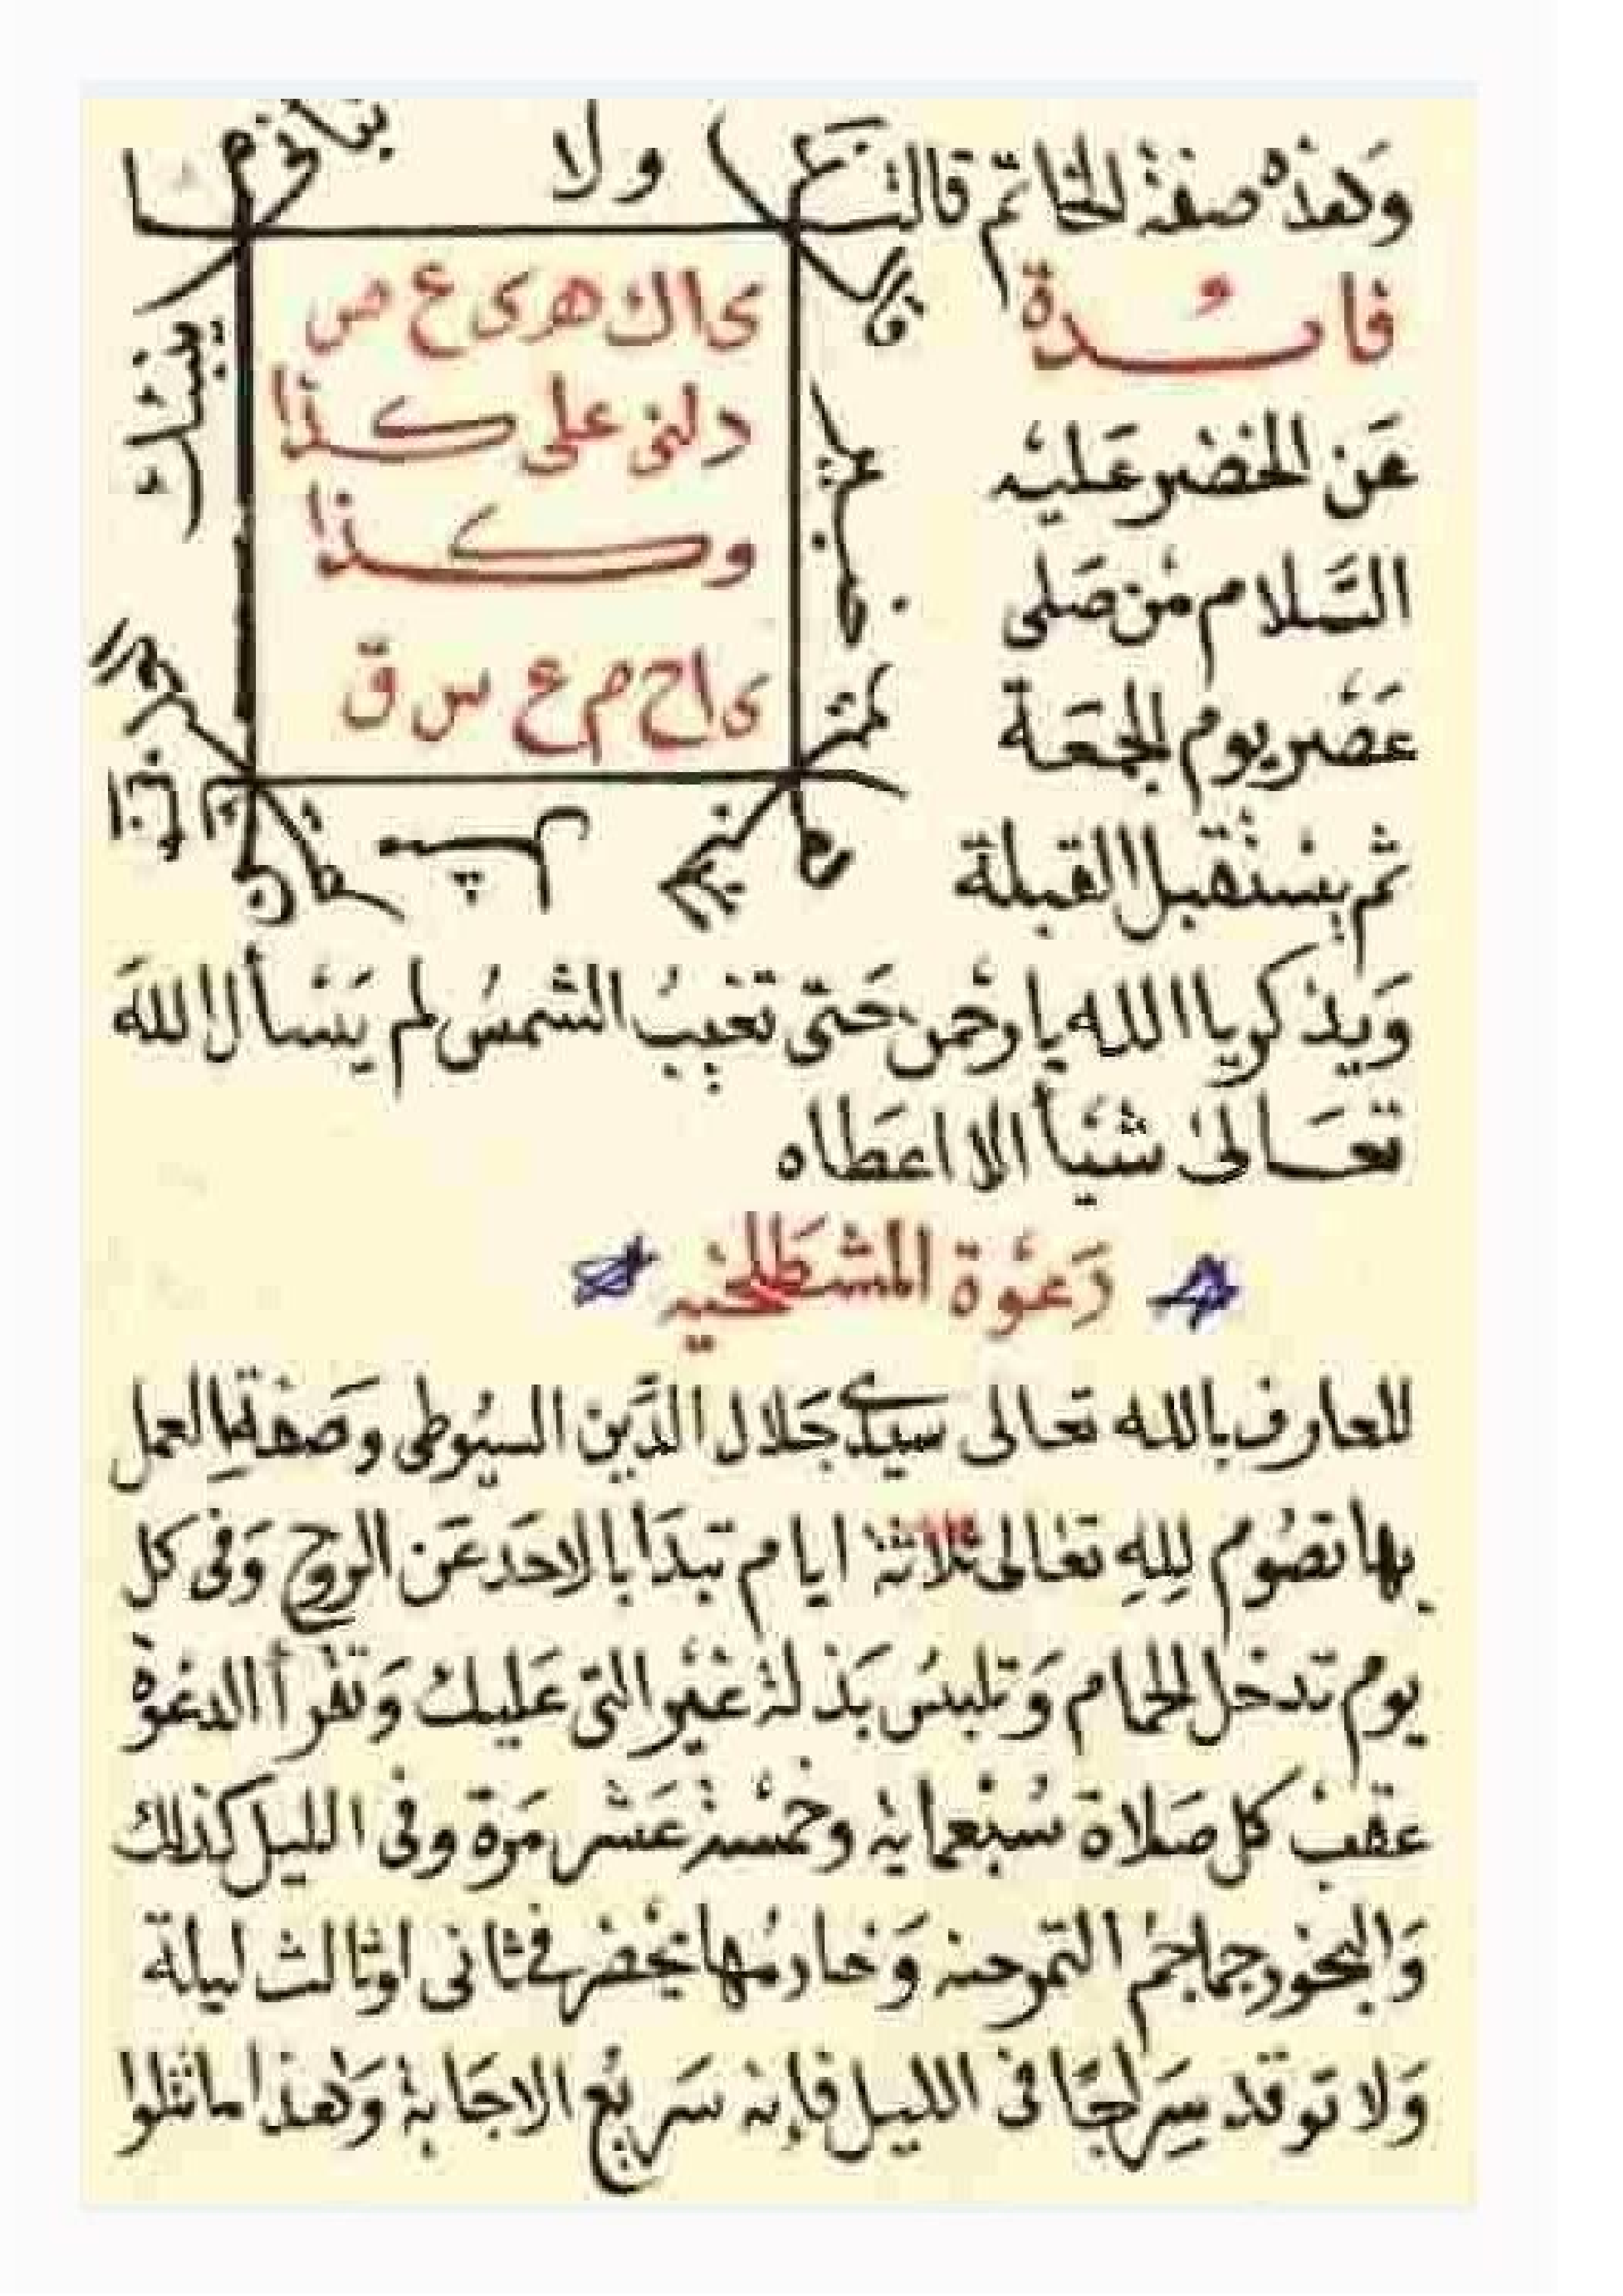 وهذه صفة الخاتم قالت
فائدة
عن الخضر عليه
السَّلام من صَلى
عَصْر يوم الجمعَة
ثم يستقبل القبلة
ى ا ك ه ى ع ص
دلنى على كذا
وكذا
ى ا ح م ع س ق
ولا
وَيذكر يا الله يا رحمن حَتى تغيبُ الشمسُ لم يَسأل اللهَ
تعَالىٰ شيَأ الا اعطاه
دَعوَة المشطلخيه
للعارف بالله تعالى سيدى جَلال الدَّين السيُوطى وصَفة العمل
بها تصُوم لِلهِ تعَالى ثلاثة ايام تبدَأ بالاحَد عَن الروح وَفى كل
يوم تدخل الحمام وَتلبسُ بَذلة غَير التى عَليك وَتقرأ الدعوَة
عقبْ كل صَلاة سَبْعماية وخمْسة عَشر مَرة وفى الليل كذلك
وَالبخور جماجم التمرحنه وَخادمُها يحْضر فى ثانى او ثالث ليلة
وَلا توقد سِراجًا فى الليل فإنه سَريع الاجَابة وَهذا ما تتلوا